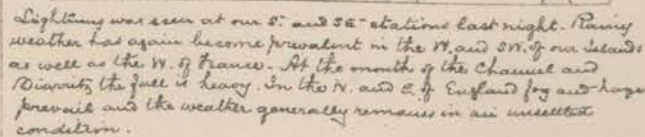 Lightning was seen at our S. and SE. stations last night. Rainy
weather has again become prevalent in the W. and SW. of our Islands
as well as the W. of France. At the mouth of the Channel and
Biarritz the fall is heavy. In the N. and E. of England fog and haze
prevail and the weather generally remains in an unsettled
condition.